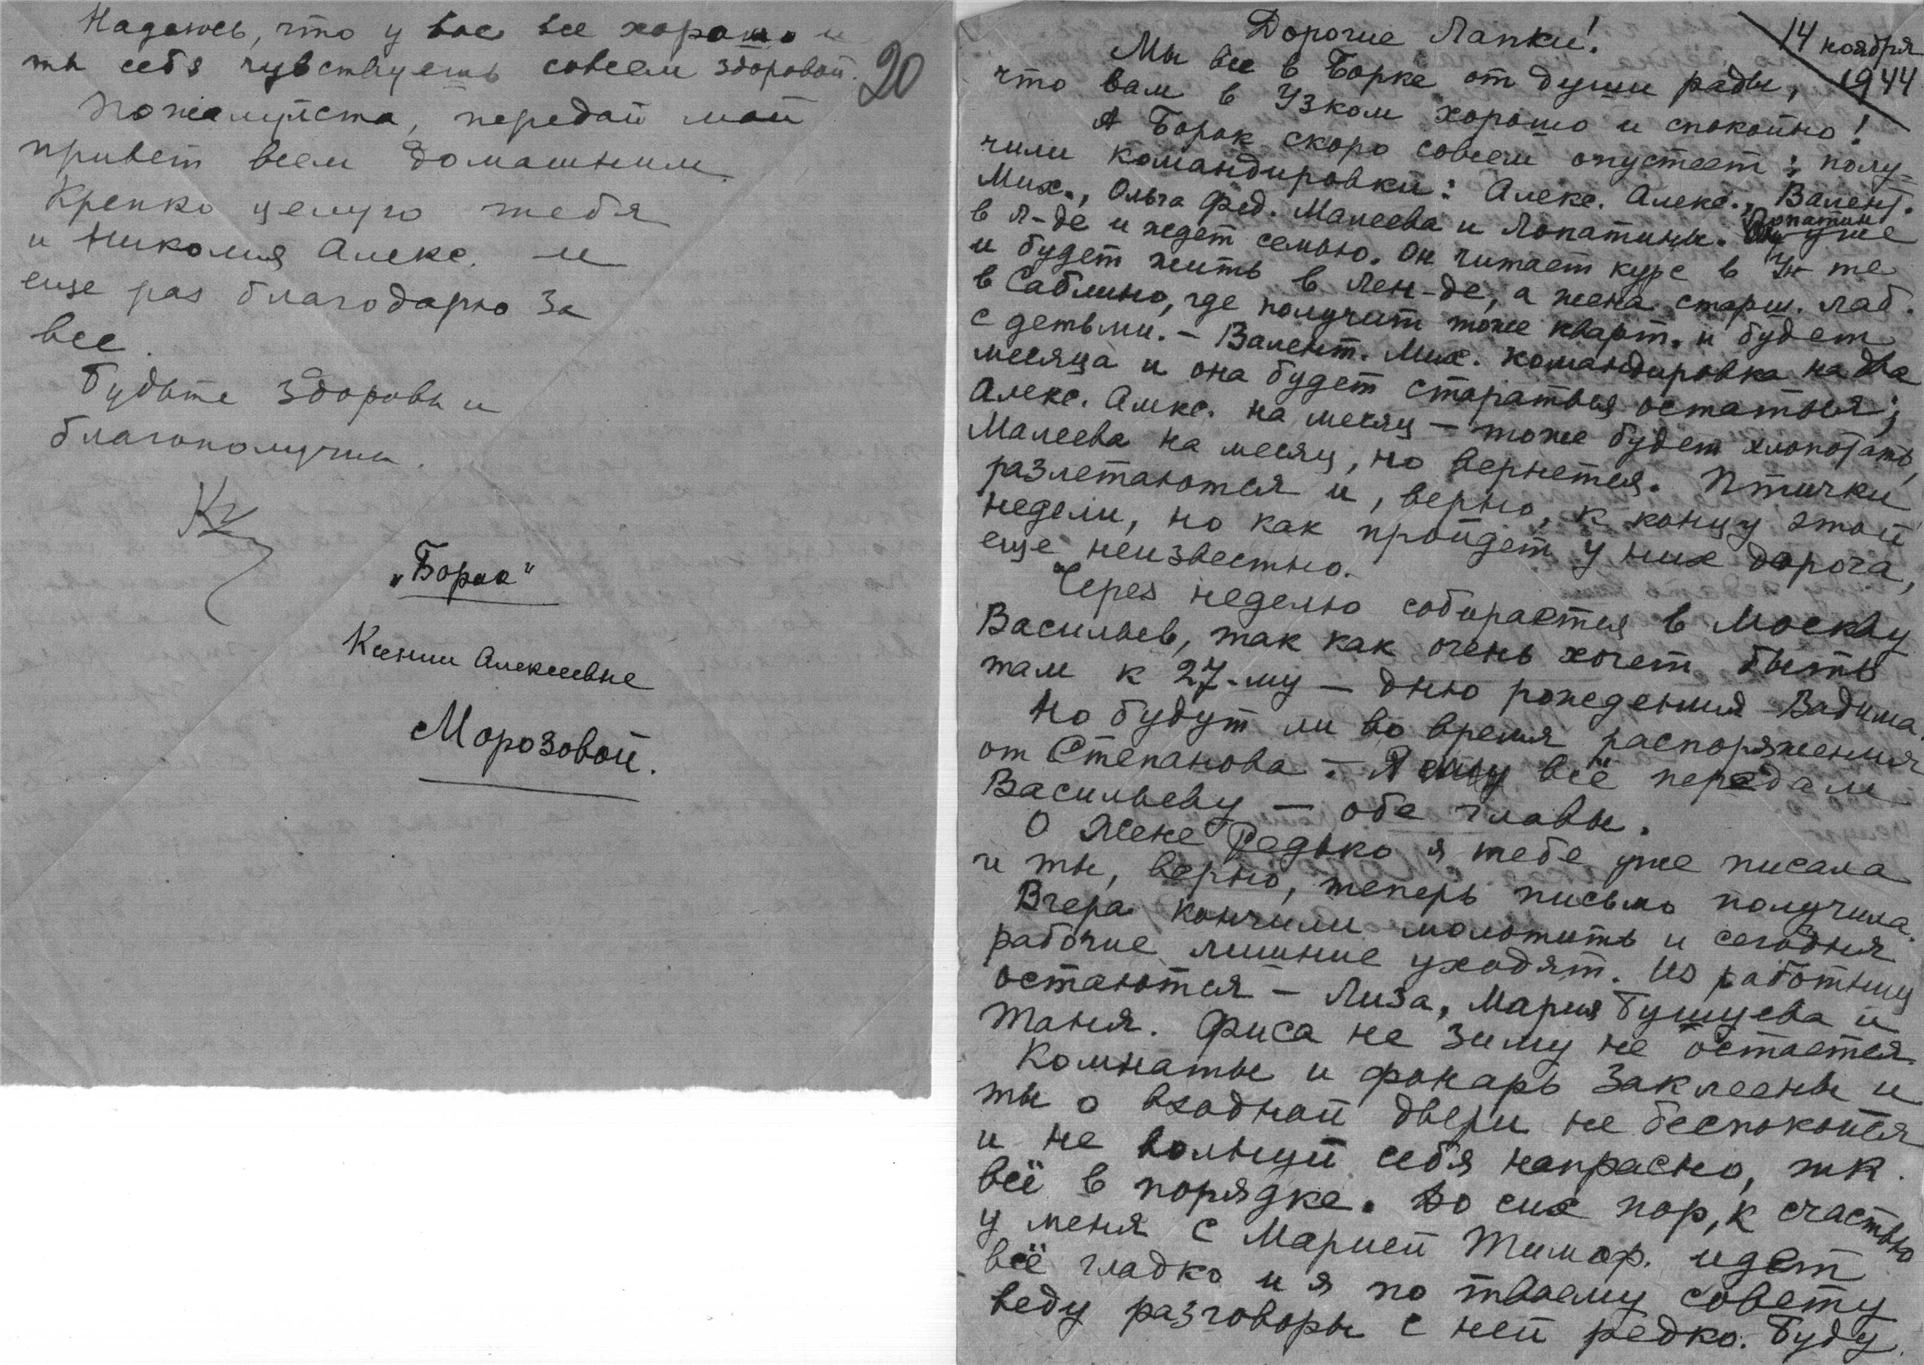 Надеюсь, что у вас все хорошо и
ты себя чувствуешь совсем здоровой.
20
Пожалуйста, передай мой
привет всем домашним.
Крепко целую тебя
и Николая Алекс. и
еще раз благодарю за
все.
Будьте здоровы и
благополучны.
"Борок"
Ксении Алексеевне
Морозовой.
14 ноября
1944
Дорогие Лапки!
Мы все в Борке от души рады,
что вам в Узком хорошо и спокойно!
А Борок скоро совсем опустеет; полу-
чили командировки: Алекс. Алекс., Валент.
Мих., Ольга Фед. Малеева и Лопатины. Лопатин уже
в Л-де и ждет семью. Он читает курс в Ун-те
и будет жить в Лен-де, а жена старш. лаб.
в Саблино, где получит тоже кварт. и будет
с детьми. – Валент. Мих. командировка на два
месяца и она будет стараться остаться;
Алекс. Алекс. на месяц – тоже будет хлопотать,
Малеева на месяц, но вернется. Птички
разлетаются и, верно, к концу этой
недели, но как пройдет у них дорога,
еще неизвестно.
Через неделю собирается в Москву
Васильев, так как очень хочет быть
там к 27-му – дню рождения Вадима.
Но будут ли во время распоряжения
от Степанова – Я всё передам
Васильеву – обе главы.
О Жене Редько я тебе уже писала
и ты, верно, теперь письмо получила.
Вчера кончили молотить и сегодня
рабочие лишние уходят. Из работниц
остаются – Лиза, Мария Бушуева и
Таня. Фиса не зиму не остается.
Комнаты и фонарь заклеены и
ты о входной двери не беспокойся
и не волнуй себя напрасно, тк.
всё в порядке. До сих пор, к счастью
у меня с Марией Тимоф. идет
всё гладко и я по твоему совету
веду разговоры с ней редко. Буду